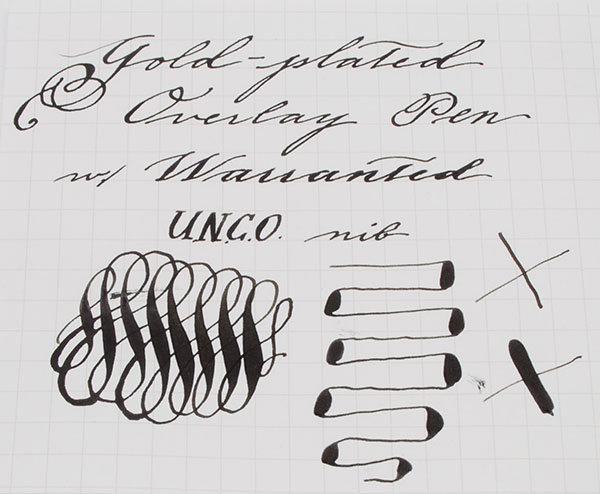 Gold-plated
Overlay Pen
w/ Warranted
U.N.C.O. nib